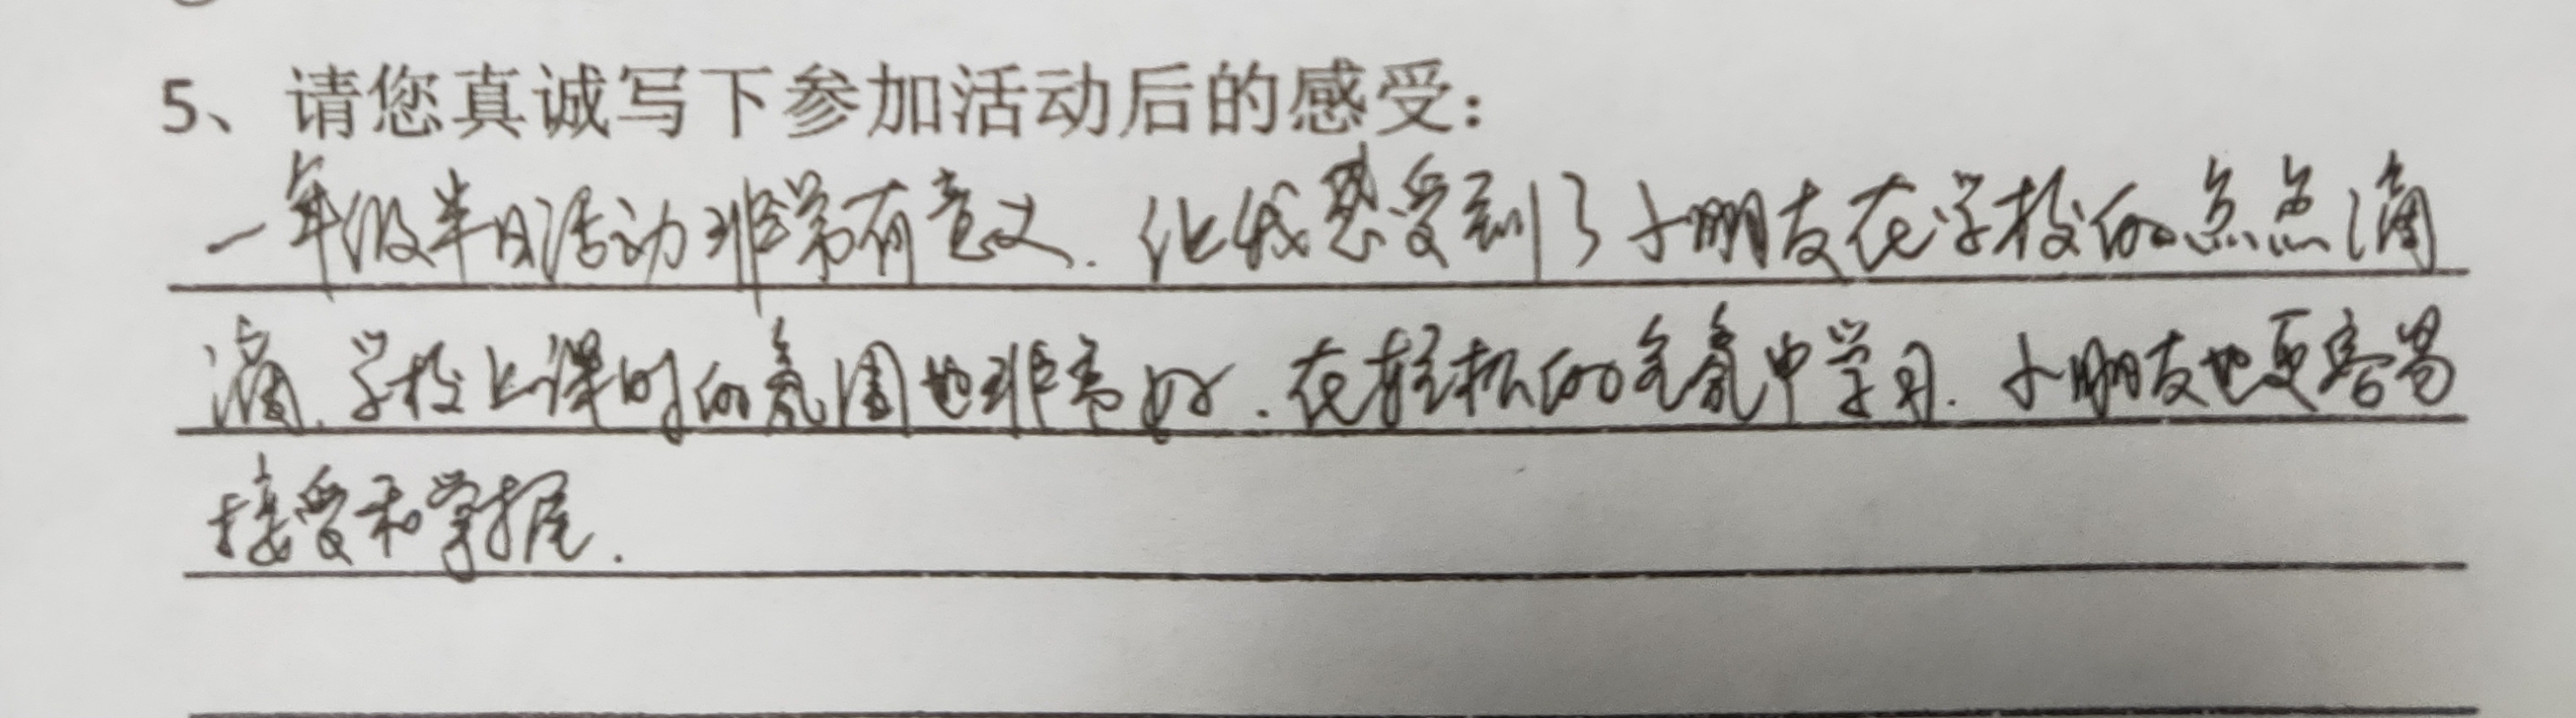 5、请您真诚写下参加活动后的感受：
一年级半日活动非常有意义.让我感受到了小朋友在学校的点点滴
滴.学校上课时的氛围也非常好.在轻松的气氛中学习.小朋友也更容易
接受和掌握.